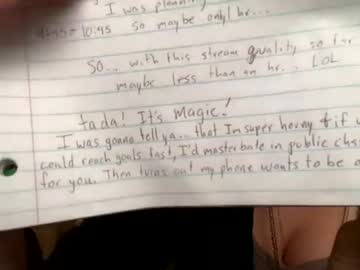 I was plann
9:45 - 10:45 so maybe only 1 hr...
SO... with this stream quality so far
maybe less than an hr.. LOL
tada! It's Magic!
I was gonna tell ya... that I'm super horny & if
could reach goals fast, I'd masterbate in public cha
for you. Then turns out my phone wants to be a